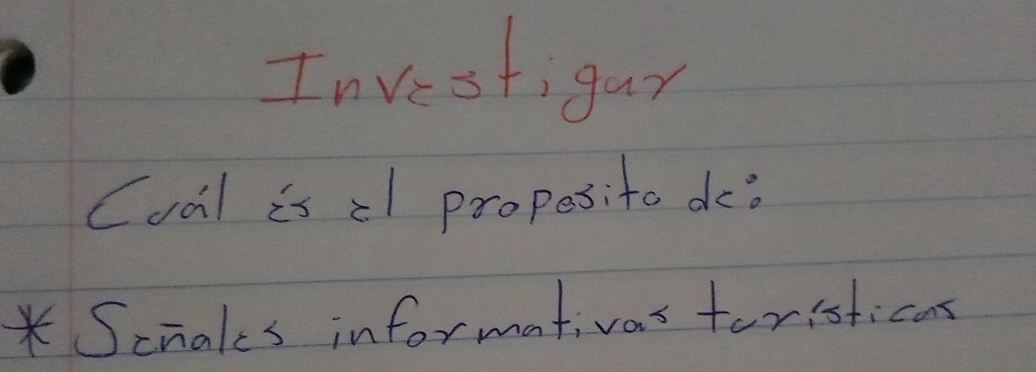 Investigar
Cuál és el proposito de:
* Señales informativas turísticas